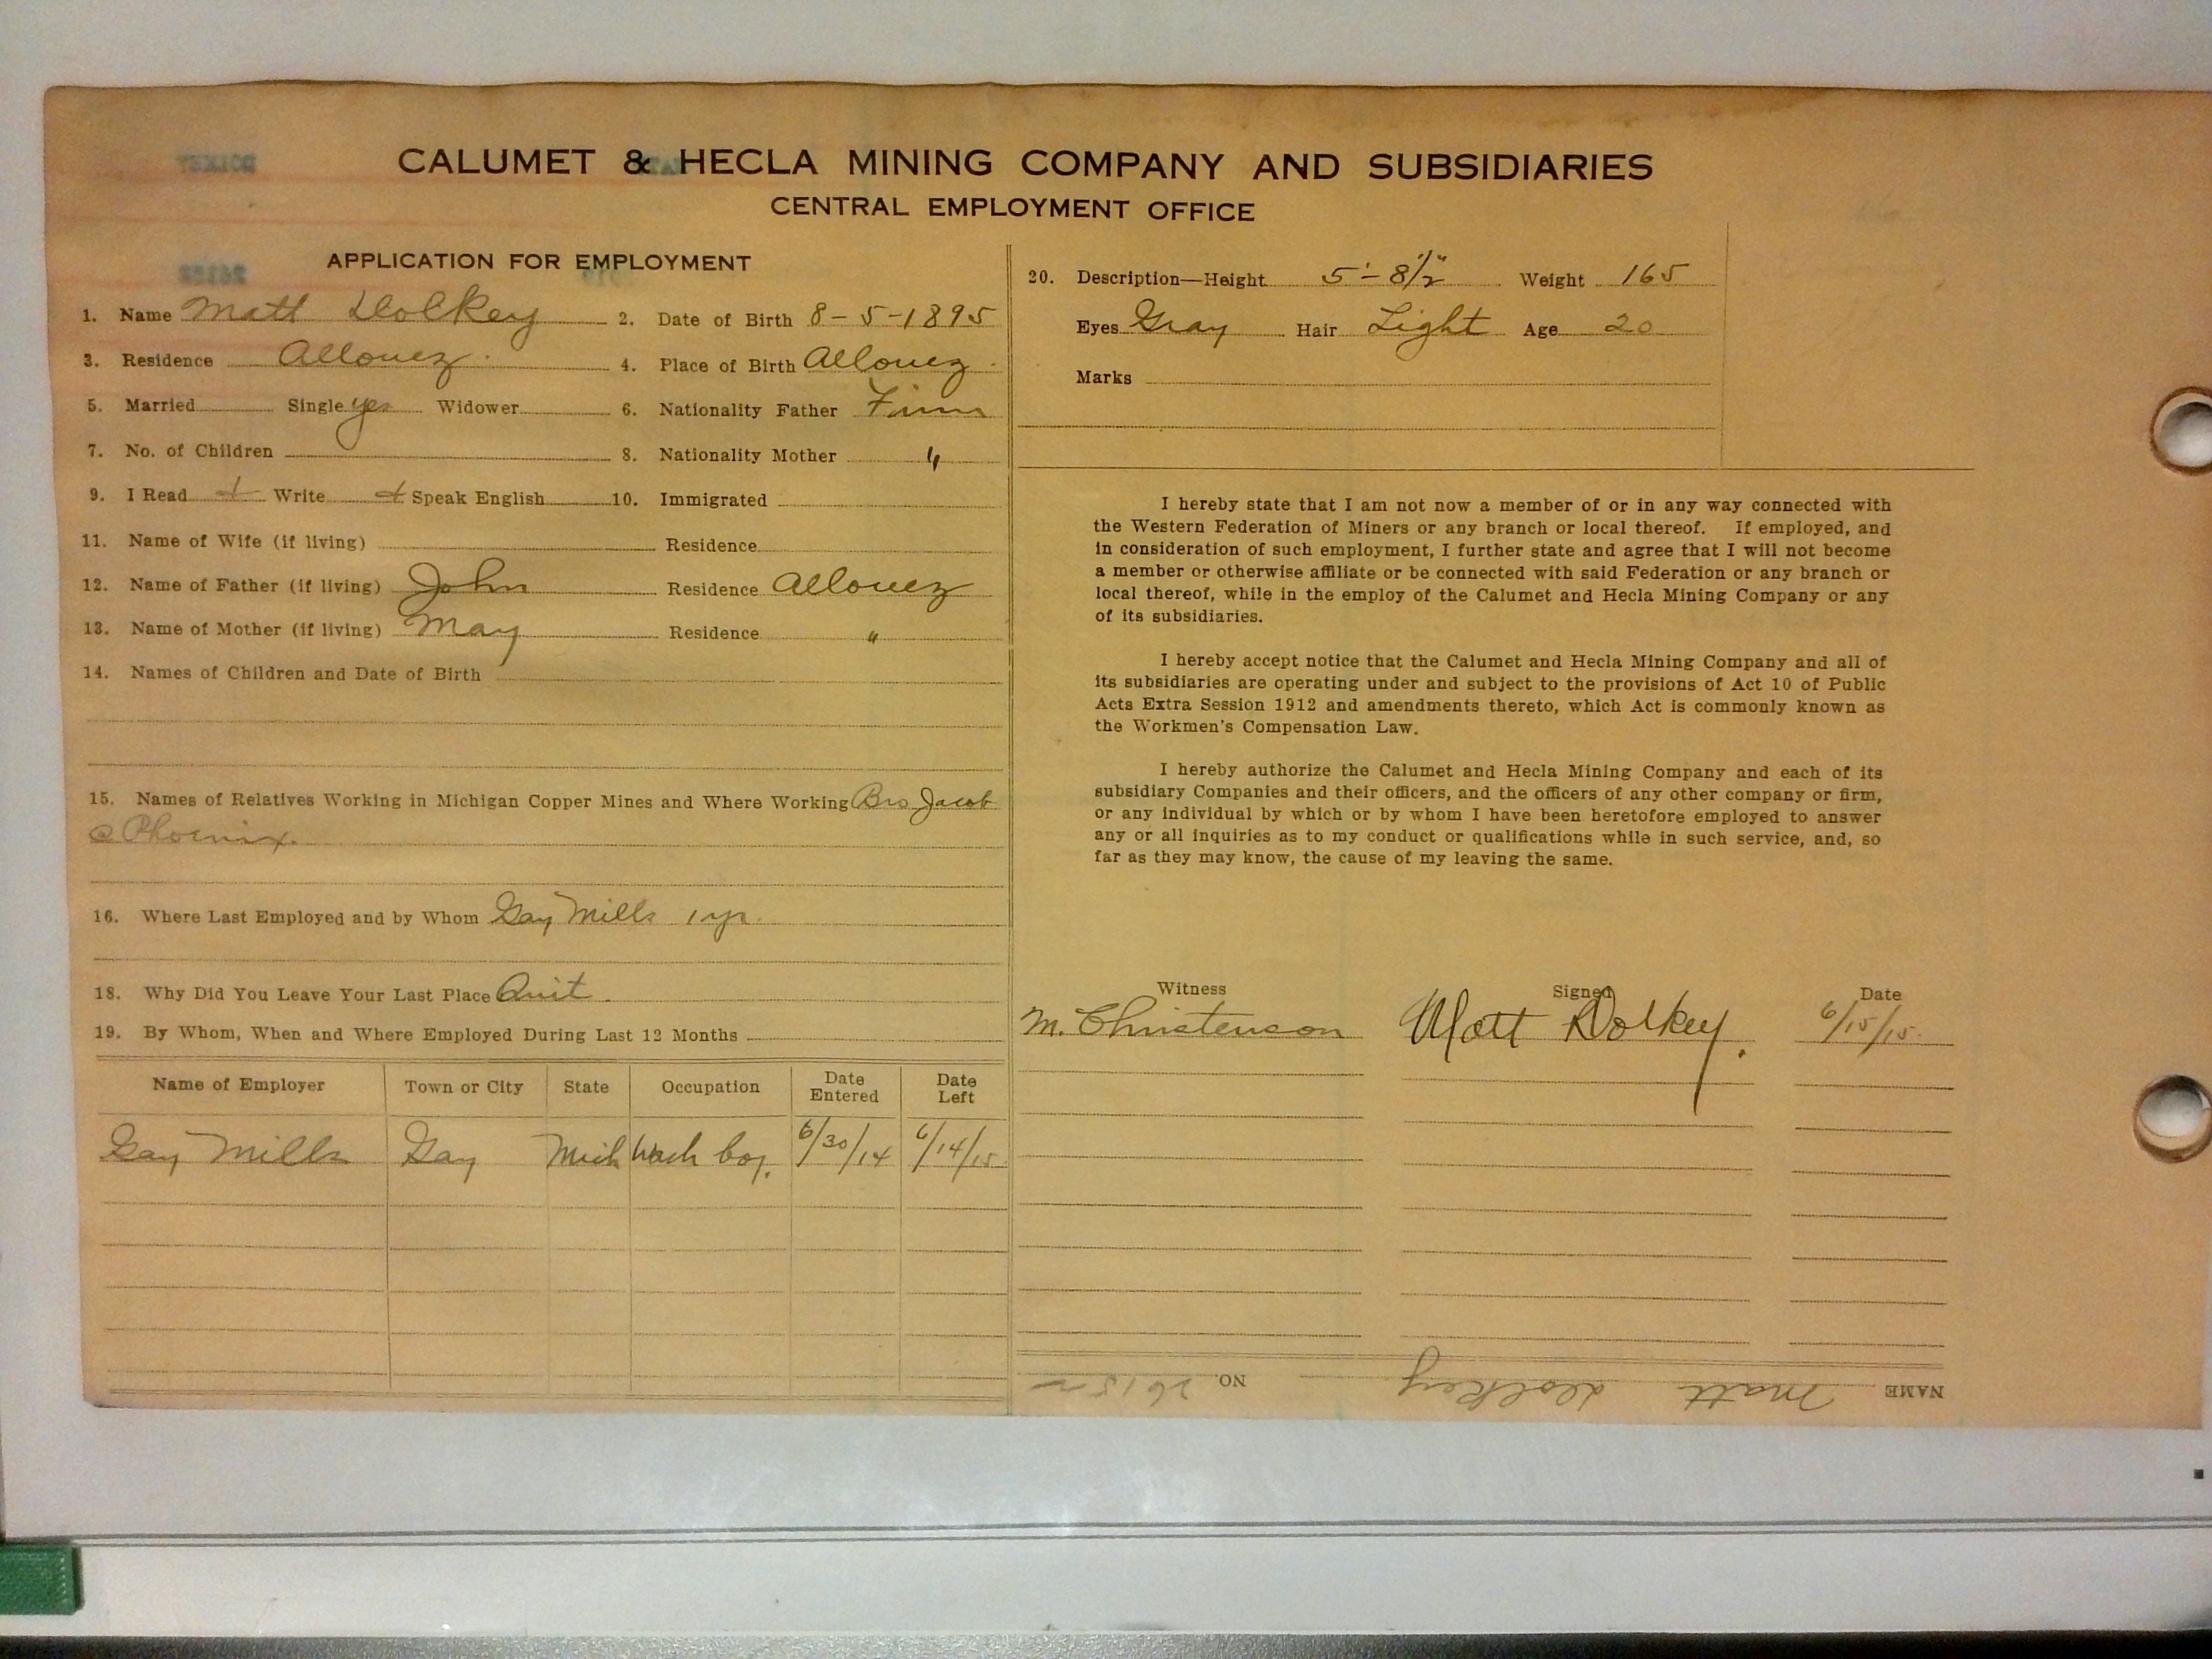 CALUMET & HECLA MINING COMPANY AND SUBSIDIARIES
CENTRAL EMPLOYMENT OFFICE
APPLICATION FOR EMPLOYMENT
1. Name Matt Dolkey 2. Date of Birth 8-5-1895
3. Residence Allouez. 4. Place of Birth Allouez.
5. Married Single yes Widower 6. Nationality Father Finn
7. No. of Children 8. Nationality Mother "
9. I Read + Write + Speak English 10. Immigrated
11. Name of Wife (if living) Residence
12. Name of Father (if living) John Residence Allouez
13. Name of Mother (if living) May Residence "
14. Names of Children and Date of Birth
15. Names of Relatives Working in Michigan Copper Mines and Where Working Bro Jacob
@ Phoenix.
16. Where Last Employed and by Whom Gay Mills 1 yr.
18. Why Did You Leave Your Last Place Quit.
19. By Whom, When and Where Employed During Last 12 Months
Name of Employer Town or City State Occupation Date Entered Date Left
Gay Mills Gay Mich Wash boy. 6/30/14 6/14/15
20. Description—Height 5'-8½" Weight 165
Eyes Gray Hair Light Age 20
Marks
I hereby state that I am not now a member of or in any way connected with
the Western Federation of Miners or any branch or local thereof. If employed, and
in consideration of such employment, I further state and agree that I will not become
a member or otherwise affiliate or be connected with said Federation or any branch or
local thereof, while in the employ of the Calumet and Hecla Mining Company or any
of its subsidiaries.
I hereby accept notice that the Calumet and Hecla Mining Company and all of
its subsidiaries are operating under and subject to the provisions of Act 10 of Public
Acts Extra Session 1912 and amendments thereto, which Act is commonly known as
the Workmen's Compensation Law.
I hereby authorize the Calumet and Hecla Mining Company and each of its
subsidiary Companies and their officers, and the officers of any other company or firm,
or any individual by which or by whom I have been heretofore employed to answer
any or all inquiries as to my conduct or qualifications while in such service, and, so
far as they may know, the cause of my leaving the same.
Witness Signed Date
M. Christenson Matt Dolkey. 6/15/15.
NAME Matt Dolkey NO. 26152